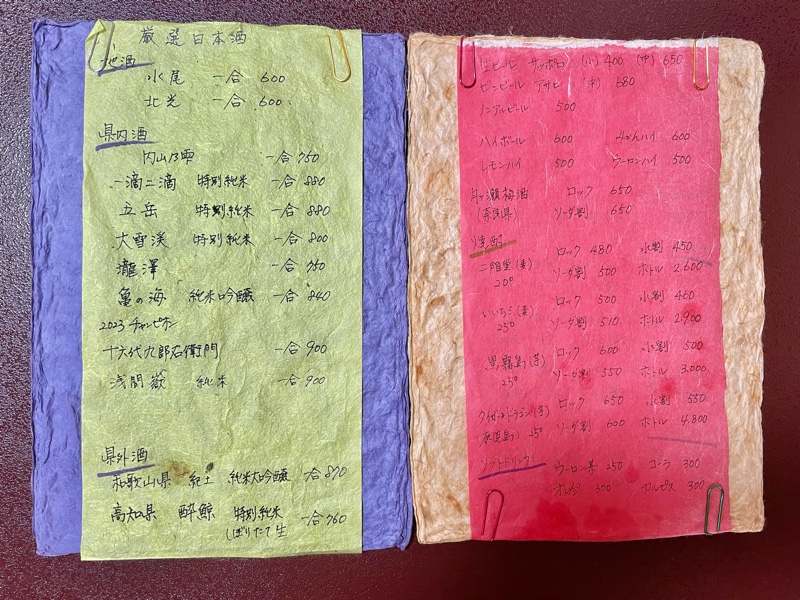 厳選日本酒
地酒
水尾 一合 600
北光 一合 600
県内酒
内山乃雫 一合 750
一滴二滴 特別純米 一合 880
立岳 特別純米 一合 880
大雪渓 特別純米 一合 800
瀧澤 一合 750
亀の海 純米吟醸 一合 840
2023チャンピオン
十六代九郎右衛門 一合 900
浅間嶽 純米 一合 900
県外酒
和歌山県 紀土 純米大吟醸 一合 870
高知県 酔鯨 特別純米 一合 760
しぼりたて生
生ビール サッポロ (小) 400 (中) 650
ビンビール アサヒ (中) 680
ノンアルビール 500
ハイボール 600 みかんハイ 600
レモンハイ 500 ウーロンハイ 500
月ヶ瀬梅酒 ロック 650
(奈良県) ソーダ割 650
焼酎
二階堂(麦) ロック 480 水割 450
20° ソーダ割 500 ボトル 2,600
いいちこ(麦) ロック 500 水割 460
25° ソーダ割 510 ボトル 2,900
黒霧島(芋) ロック 600 水割 500
25° ソーダ割 550 ボトル 3,000
ロック 650 水割 550
(鹿児島) 25° ソーダ割 600 ボトル 4,800
ソフトドリンク
ウーロン茶 250 コーラ 300
オレンジ 300 カルピス 300